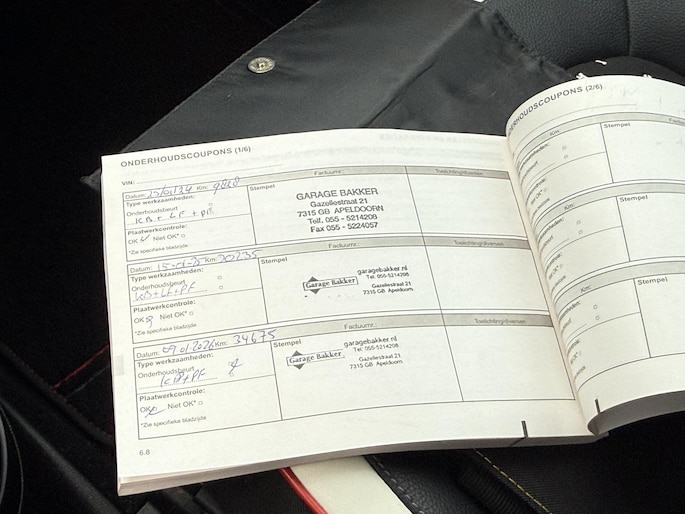 ONDERHOUDSCOUPONS (1/6)
VIN:
Datum: Km: Factuurnr.: Toelichting/diversen
Type werkzaamheden: Stempel
Onderhoudsbeurt
KB + LF + PF
Plaatwerkcontrole:
OK Niet OK*
*Zie specifieke bladzijde
GARAGE BAKKER
Gazellestraat 21
7315 GB APELDOORN
Telf. 055 - 5214208
Fax 055 - 5224057
Datum: Km: 20235 Factuurnr.: Toelichting/diversen
Type werkzaamheden: Stempel
Onderhoudsbeurt
KB+LF+PF
Plaatwerkcontrole:
OK Niet OK*
*Zie specifieke bladzijde
Garage Bakker
garagebakker.nl
Tel: 055-5214208
Gazellestraat 21
7315 GB Apeldoorn
Datum: 09 01 2026 Km: 34675 Factuurnr.: Toelichting/diversen
Type werkzaamheden: Stempel
Onderhoudsbeurt
KB+PF
Plaatwerkcontrole:
OK Niet OK*
*Zie specifieke bladzijde
Garage Bakker
garagebakker.nl
Tel: 055-5214208
Gazellestraat 21
7315 GB Apeldoorn
6.8
ONDERHOUDSCOUPONS (2/6)
Km:
Stempel
Km:
Stempel
Km:
Stempel